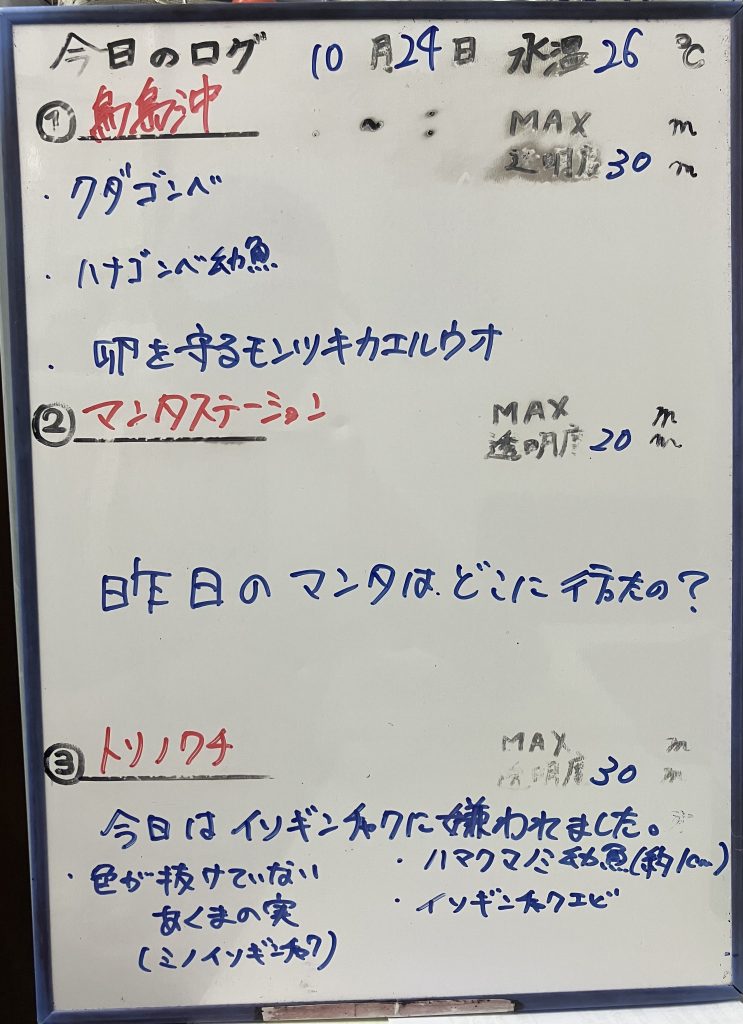 今日のログ 10月24日 水温26℃
① 鳥島沖 ~ : MAX m
透明度30m
・クダゴンベ
・ハナゴンベ幼魚
・卵を守るモンツキカエルウオ
② マンタステーション MAX m
透明度20m
昨日のマンタはどこに行ったの？
③ トリノクチ MAX m
透明度30m
今日はイソギンチャクに嫌われました。
・色が抜けていない
あくまの実
(ミノイソギンチャク)
・ハマクマノミ幼魚(約1cm)
・イソギンチャクエビ